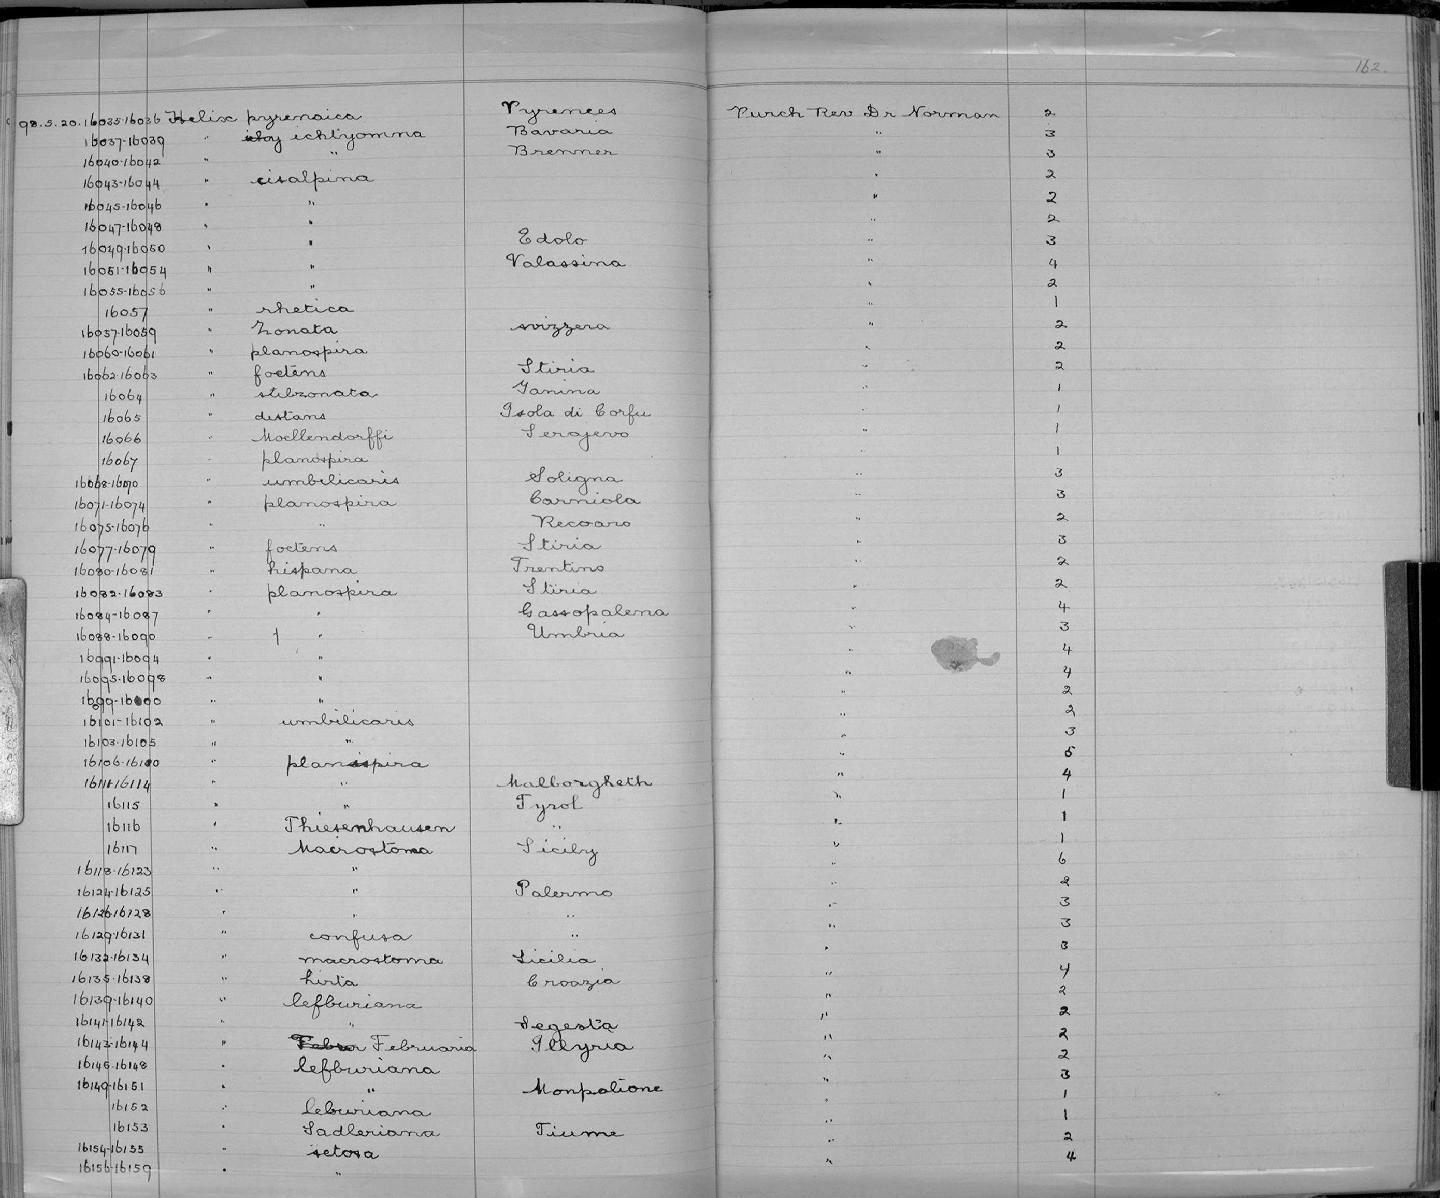 162.
98.5.20.16035-16036 Helix pyrenaica Pyrenees Purch Rev Dr Norman 2
16037-16039 " ichtyomna Bavaria " 3
16040-16042 " " Brenner " 3
16043-16044 " cisalpina " 2
16045-16046 " " " 2
16047-16048 " " " 2
16049-16050 " " Edolo " 3
16051-16054 " " Valassina " 4
16055-16056 " " " 2
16057 " rhetica " 1
16057-16059 " Zonata svizzera " 2
16060-16061 " planospira " 2
16062-16063 " foetens Stiria " 2
16064 " stilzonata Janina " 1
16065 " distans Isola di Corfu " 1
16066 " Moellendorffi Serajevo " 1
16067 " planospira " 1
16068-16070 " umbilicaris Soligna " 3
16071-16074 " planospira Carniola " 3
16075-16076 " " Recoaro " 2
16077-16079 " foetens Stiria " 3
16080-16081 " hispana Trentino " 2
16082-16083 " planospira Stiria " 2
16084-16087 " " Gassopalena " 4
16088-16090 " " Umbria " 3
16091-16094 " " " 4
16095-16098 " " " 4
16099-16100 " " " 2
16101-16102 " umbilicaris " 2
16103-16105 " " " 3
16106-16110 " planispira " 5
16111-16114 " " Malborgheth " 4
16115 " " Tyrol " 1
16116 " Thiesenhausen " " 1
16117 " Macrostoma Sicily " 1
16118-16123 " " " 6
16124-16125 " " Palermo " 2
16126-16128 " " " " 3
16129-16131 " confusa " " 3
16132-16134 " macrostoma Sicilia " 3
16135-16138 " hirta Croazia " 4
16139-16140 " lefburiana " 2
16141-16142 " " Segesta " 2
16143-16144 " Februaria Illyria " 2
16145-16148 " lefburiana " 2
16149-16151 " " Monpalione " 3
16152 " leburiana " 1
16153 " Sadleriana Fiume " 1
16154-16155 " setosa " 2
16156-16159 " " " 4